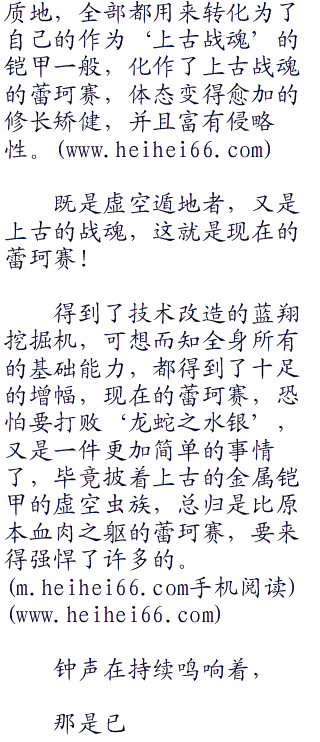 质地，全部都用来转化为了
自己的作为‘上古战魂’的
铠甲一般，化作了上古战魂
的蕾珂赛，体态变得愈加的
修长矫健，并且富有侵略
性。(www.heihei66.com)
既是虚空遁地者，又是
上古的战魂，这就是现在的
蕾珂赛！
得到了技术改造的蓝翔
挖掘机，可想而知全身所有
的基础能力，都得到了十足
的增幅，现在的蕾珂赛，恐
怕要打败‘龙蛇之水银’，
又是一件更加简单的事情
了，毕竟披着上古的金属铠
甲的虚空虫族，总归是比原
本血肉之躯的蕾珂赛，要来
得强悍了许多的。
(m.heihei66.com手机阅读)
(www.heihei66.com)
钟声在持续鸣响着，
那是已